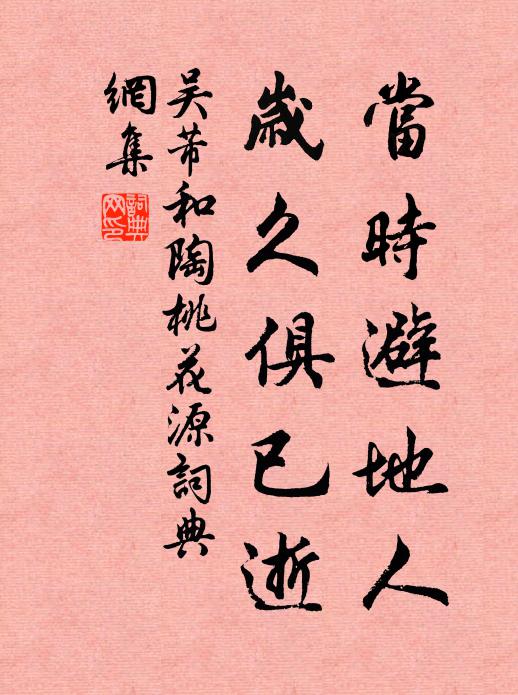 當時避地人
歲久俱已逝
吴芾和陶桃花源詞典
網集
詞典
网印